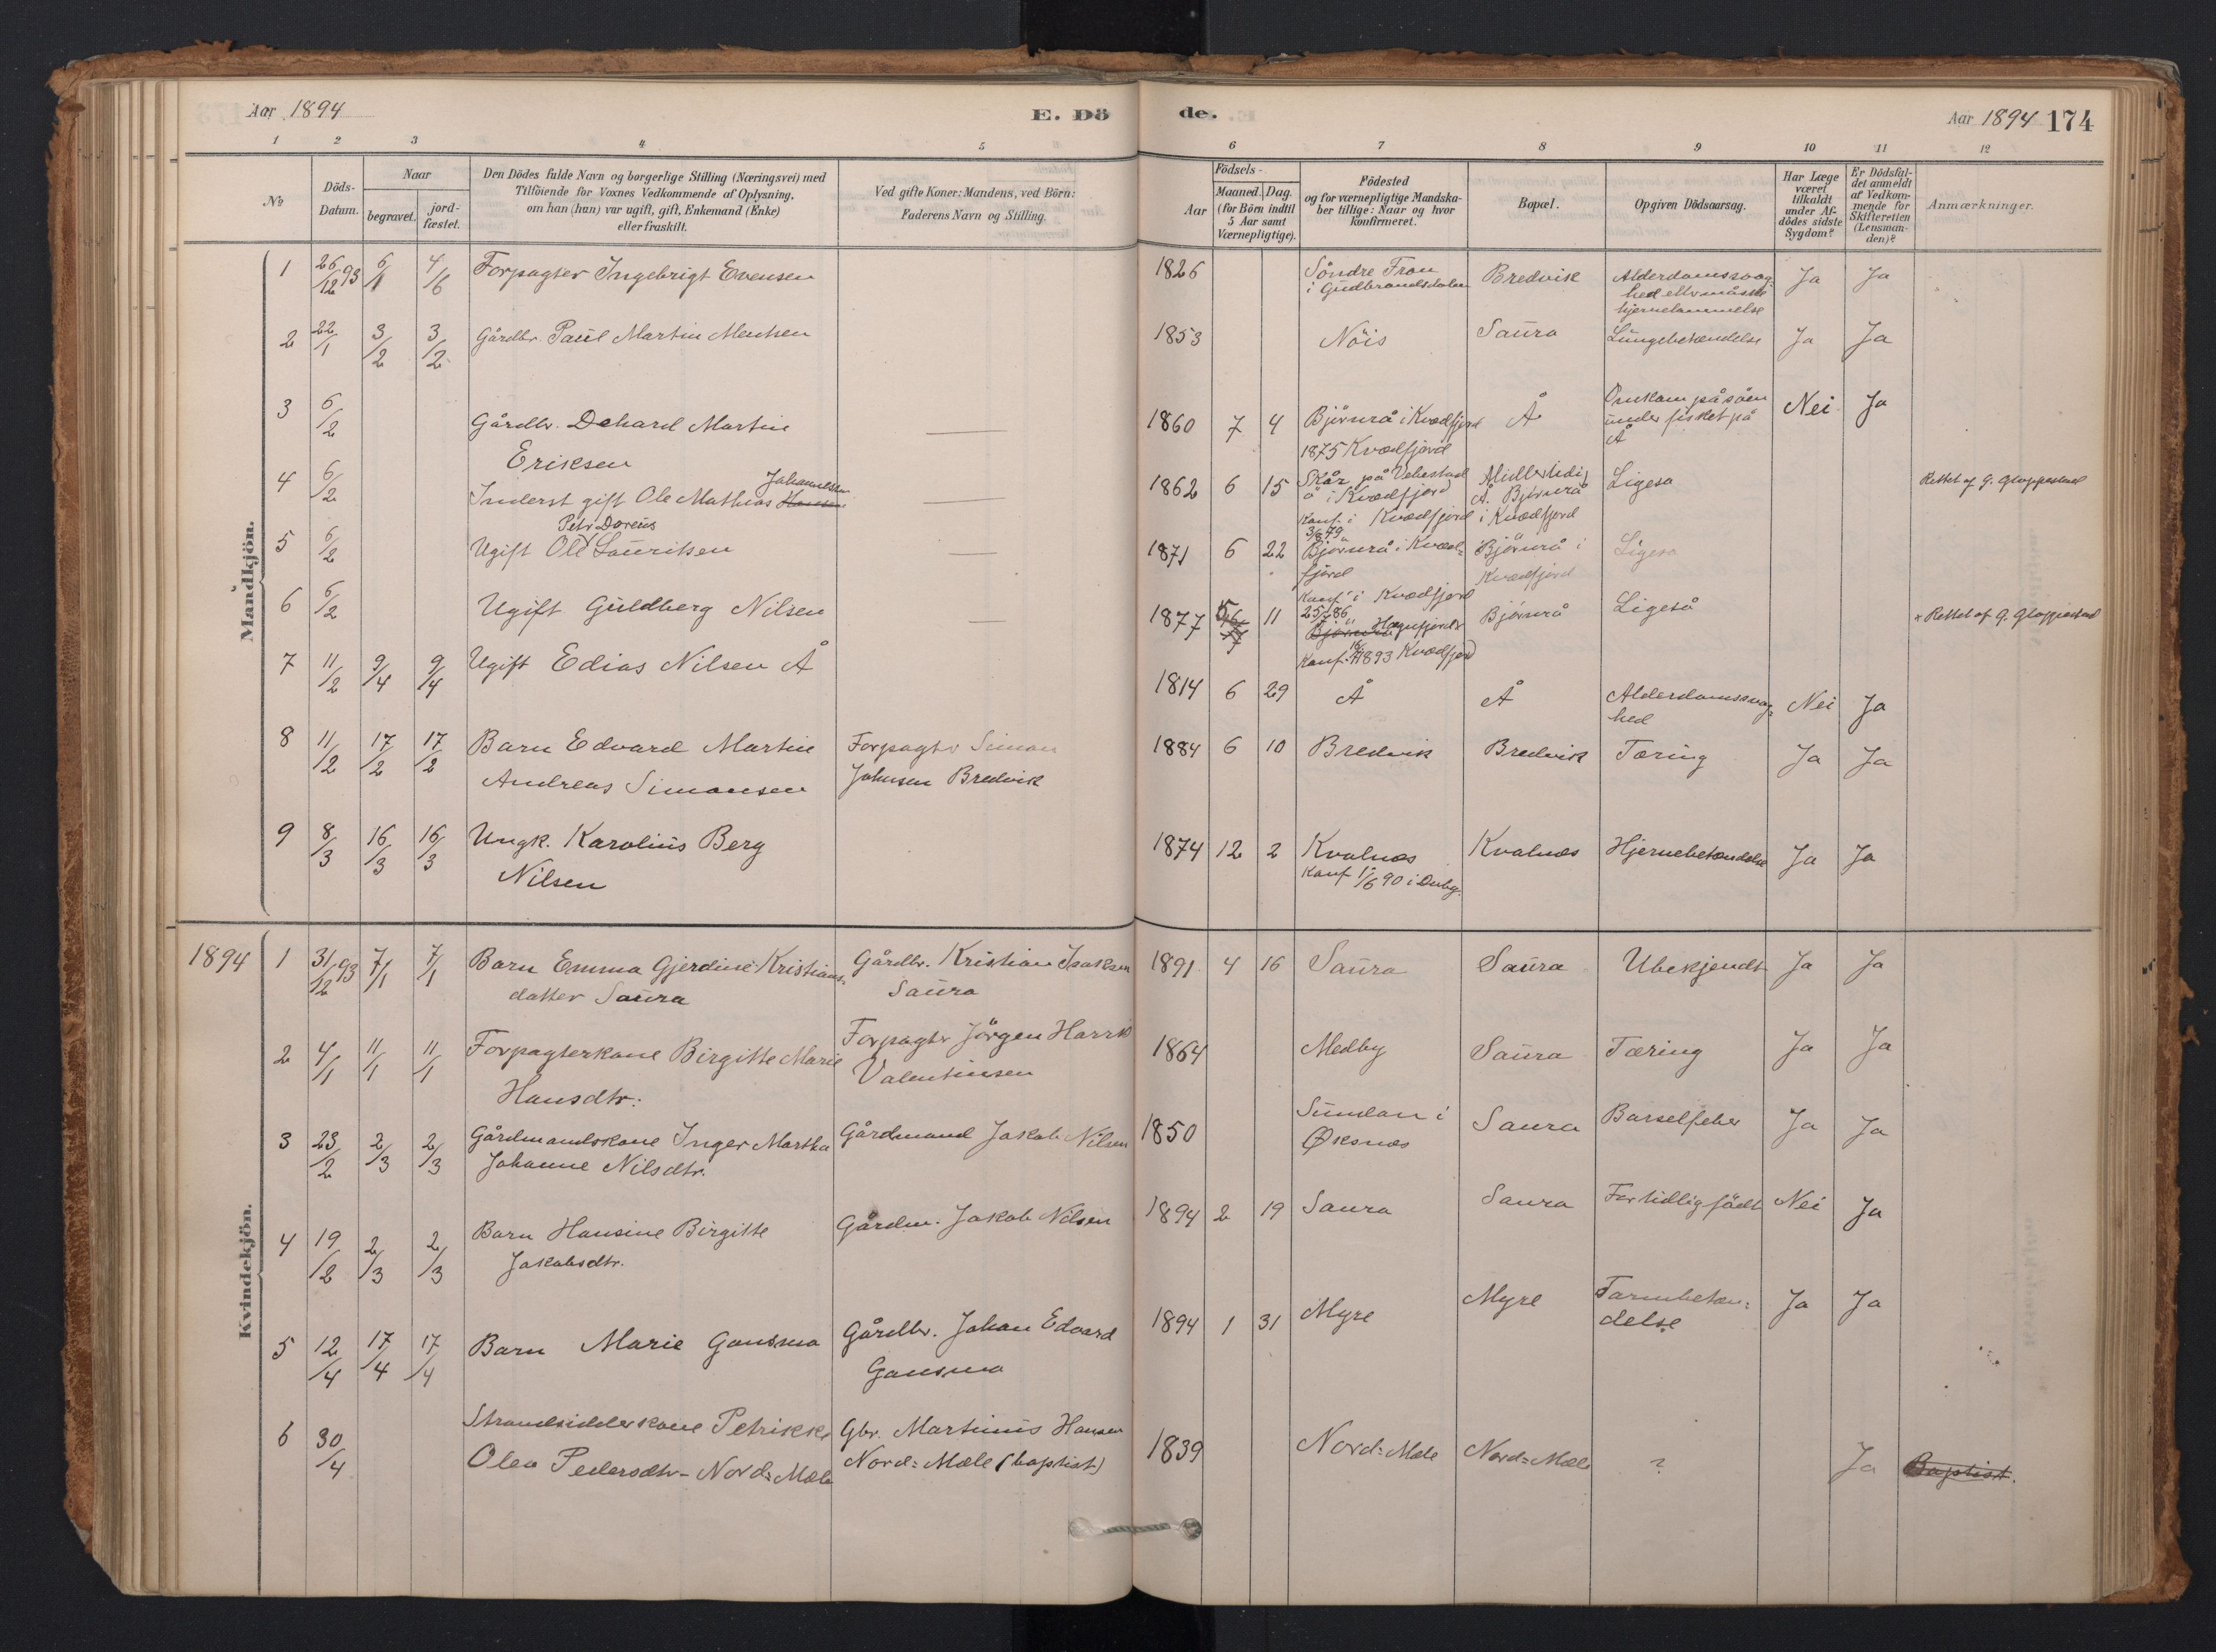 Aar 1894
E. Dö
de.
Aar 1894 174
1 2 3 4 5 6 7 8 9 10 11 12
No
Döds-Datum.
Naar
begravet.
jord-fæstet.
Den Dödes fulde Navn og borgerlige Stilling (Næringsvei) med
Tilföiende for Voxnes Vedkommende af Oplysning,
om han (hun) var ugift, gift, Enkemand (Enke)
eller fraskilt.
Ved gifte Koner: Mandens, ved Börn:
Faderens Navn og Stilling.
Födsels-
Aar
Maaned. Dag.
(for Börn indtil
5 Aar samt
Værnepligtige).
Födested
og for værnepligtige Mandska-
ber tillige: Naar og hvor
konfirmeret.
Bopæl.
Opgiven Dödsaarsag.
Har Læge
været
tilkaldt
under Af-
dödes sidste
Sygdom?
Er Dödsfal-
det anmeldt
af Vedkom-
mende for
Skifteretten
(Lensman-
den)?
Anmærkninger.
Mandkjön.
1 26/12 93 6/1 4/6 Forpagter Ingebrigt Evensen 1826 Söndre Fron Bredvik Alderdomssvag- Ja Ja
i Gudbrandsdalen hed
hjernelammelse
2 22/1 3/2 3/2 Gårdbr. Paul Martin 1853 Nöis Saura Lungebetændelse Ja Ja
3 6/2 Gårdbr. Dehard Martin 1860 7 4 Björnrå i Kvædfjord Å Omkom på såen Nei Ja
Eriksen 1875 Kvædfjord under fisket på
Å
4 6/2 Inderst gift Ole Mathias Hansen Johannessen 1862 6 15 Skår på Vebestad Midlertidig Ligeså Rettet af G. Gloppestad
ö i Kvædfjord Å. Björnrå
Konf. i Kvædfjord i Kvædfjord
3/8 79
5 6/2 Ugift Ole Petr. Doreus Lauritsen 1871 6 22 Björnrå i Kvæd- Björnrå i Ligeså
fjord Kvædfjord
Konf. i Kvædfjord
25/7 86
6 6/2 Ugift Guldberg Nilsen 1877 5 11 Björnrå Hognfjord Björnrå Ligeså + Rettet af G. Gloppestad
Konf. 1893 Kvædfjord
7 11/2 9/4 9/4 Ugift Edias Nilsen Å 1814 6 29 Å Å Alderdomssvag- Nei Ja
hed
8 11/2 17/2 17/2 Barn Edvard Martin Forpagter Simon 1884 6 10 Bredvik Bredvik Tæring Ja Ja
Andreas Simonsen Johnsen Bredvik
9 8/3 16/3 16/3 Ungk. Karolius Berg 1874 12 2 Kvalnæs Kvalnæs Hjernebetændelse Ja Ja
Nilsen Konf. 1/6 90 i Dvbg.
1894
Kvindekjön.
1 31/12 93 7/1 7/1 Barn Emma Gjerdine Kristians- Gårdbr. Kristian Isaksen 1891 4 16 Saura Saura Ubekjendt Ja Ja
datter Saura Saura
2 4/1 11/1 11/1 Forpagterkone Birgitte Marie Forpagtr Jörgen Harrik 1864 Medby Saura Tæring Ja Ja
Hansdtr. Valentinsen
3 23/2 2/3 2/3 Gårdmandskone Inger Martha Gårdmand Jakob Nilsen 1850 Sundan i Saura Barselfeber Ja Ja
Johanne Nilsdtr. Øksnæs
4 19/2 2/3 2/3 Barn Hansine Birgitte Gårdm. Jakob Nilsen 1894 2 19 Saura Saura For tidlig födt Nei Ja
Jakobsdtr.
5 12/4 17/4 17/4 Barn Marie Gausma Gårdbr. Johan Edvard 1894 1 31 Myre Myre Tarmbetæn- Ja Ja
Gausma delse
6 30/4 Strandsidderkone Petrikke Gbr. Martinus Hansen 1839 Nord-Mæle Nord-Mæle ? Ja Baptist.
Olea Pedersdtr - Nord-Mæle Nord-Mæle (baptist)